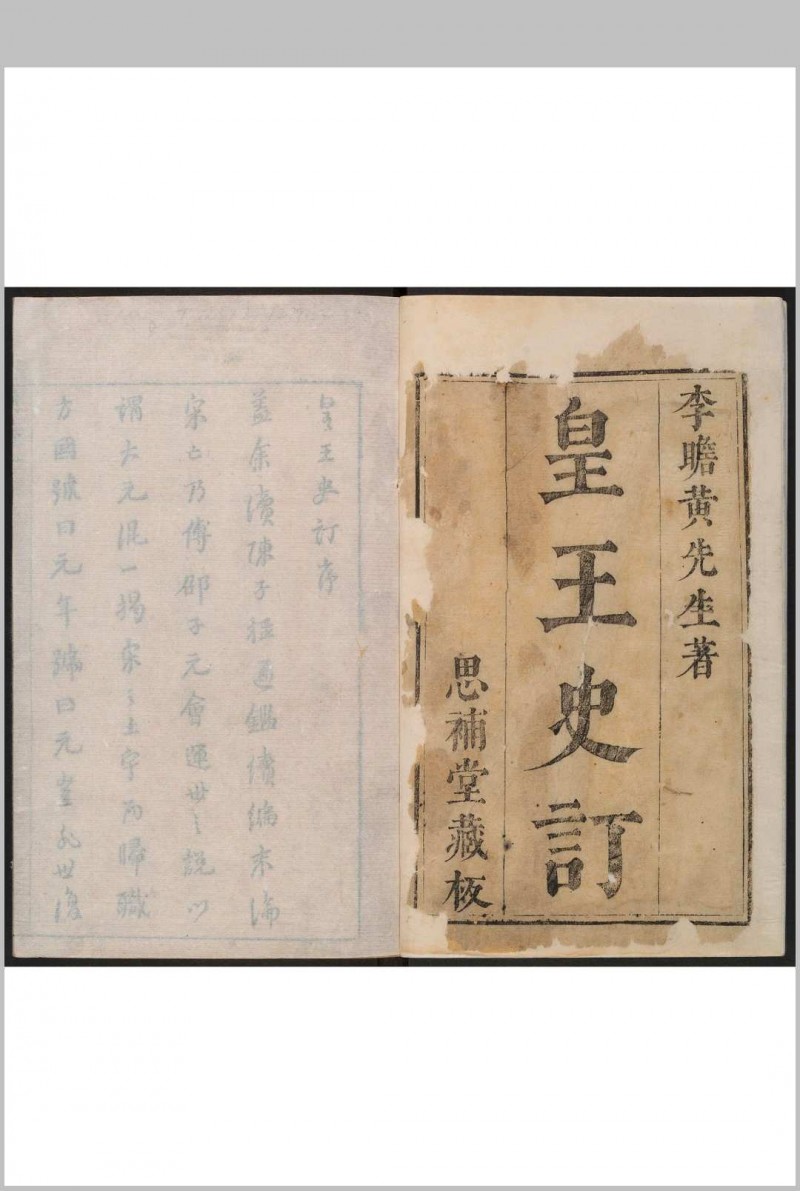 李瞻黄先生著
皇王史訂
思補堂藏板
皇王史訂序
盖余讀陳子桱通鑑續編末論
宋亡乃傅邵子元會運世之說以
謂大元混一揭宋之土宇而歸職
方國號曰元年號曰元豈非世復